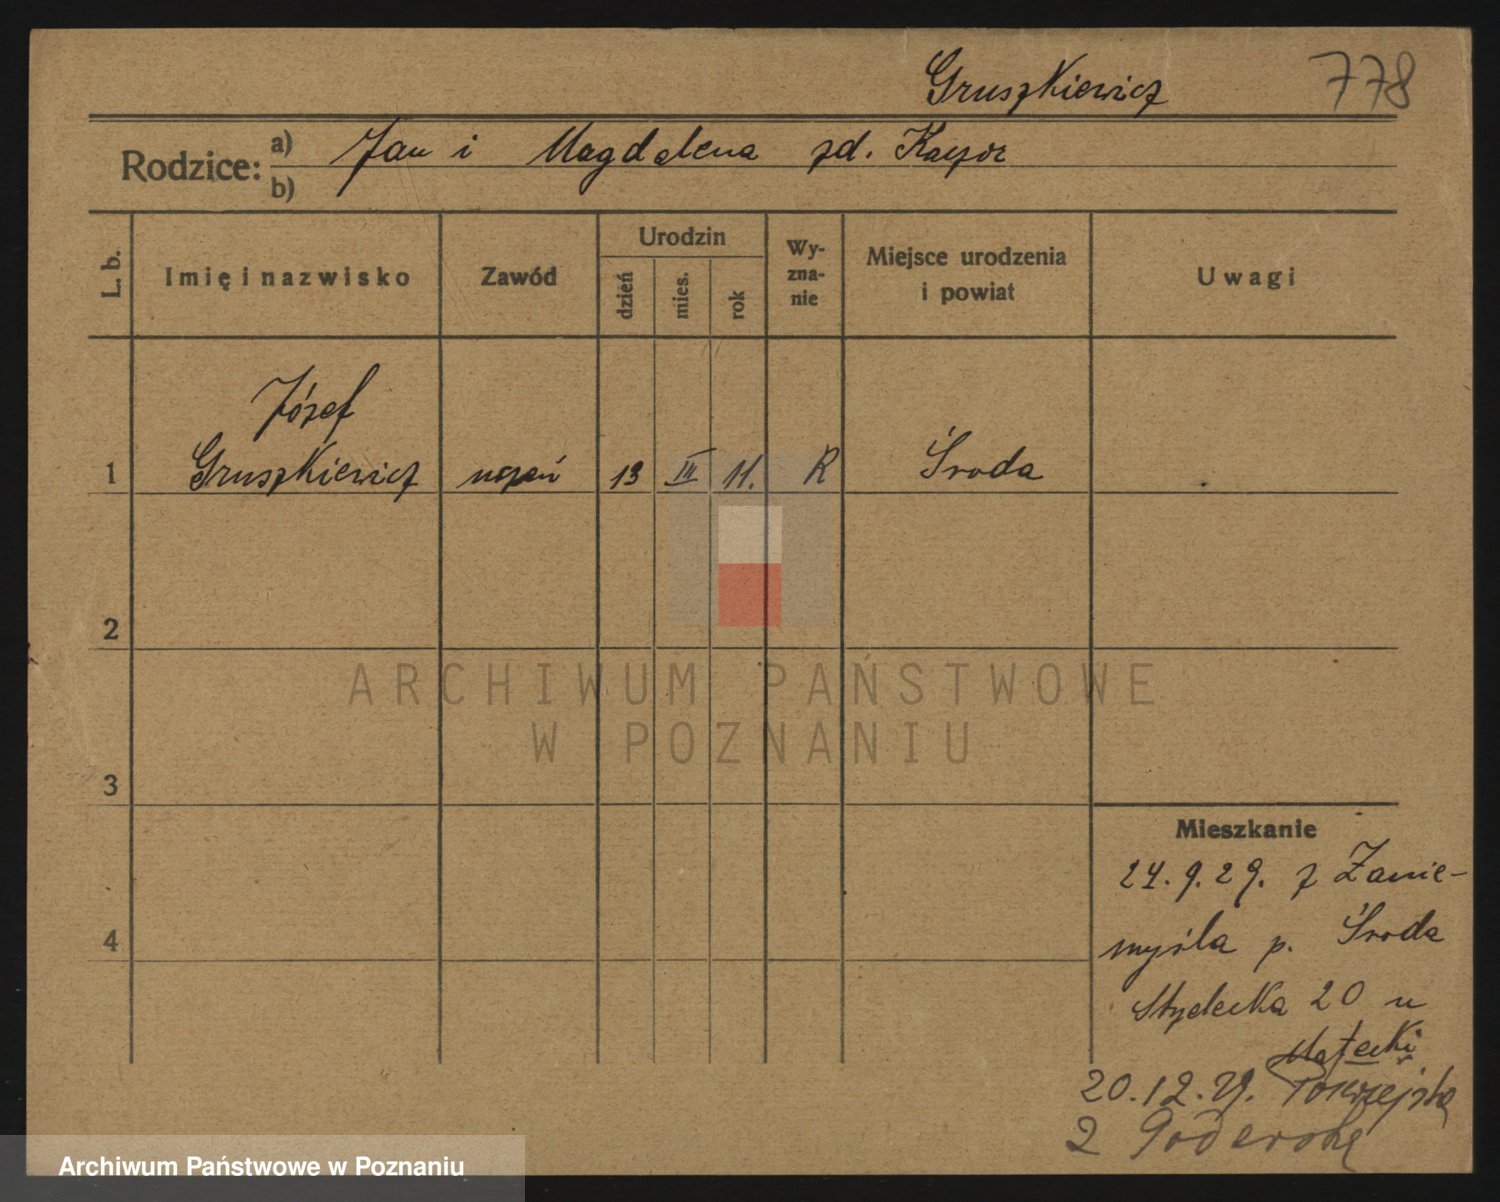 Gruszkiewicz 778
Rodzice: a) Jan i Magdalena zd. Kacpor
b)
L. b.
Imię i nazwisko
Zawód
Urodzin
dzień
mies.
rok
Wy-
zna-
nie
Miejsce urodzenia
i powiat
Uwagi
Józef
1 Gruszkiewicz uczeń 13 III 11. R Środa
2
ARCHIWUM PAŃSTWOWE
W POZNANIU
3
Mieszkanie
24.9.29. z Zanie-
4
myśla p. Środa
20 u
Małecki
20.12.29.
2
Archiwum Państwowe w Poznaniu